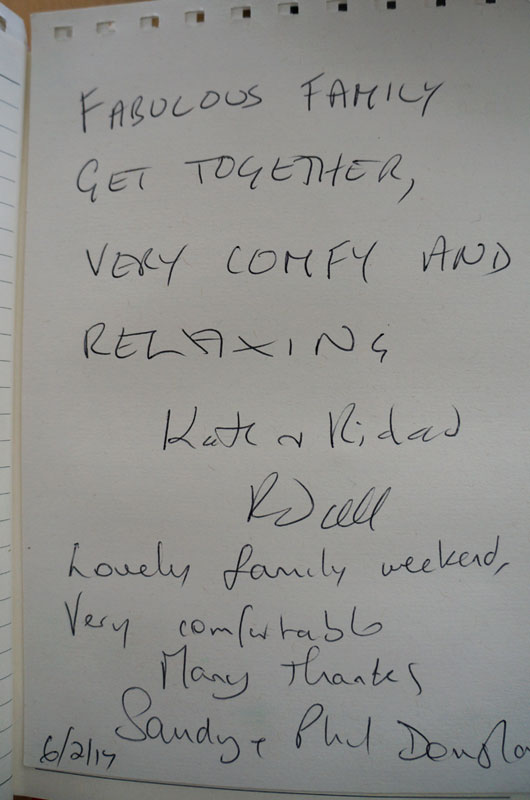 FABULOUS FAMILY
GET TOGETHER,
VERY COMFY AND
RELAXING
Kate & Richard
Lovely family weekend,
Very comfortable
Many Thanks
Sandy + Phil
6/2/14